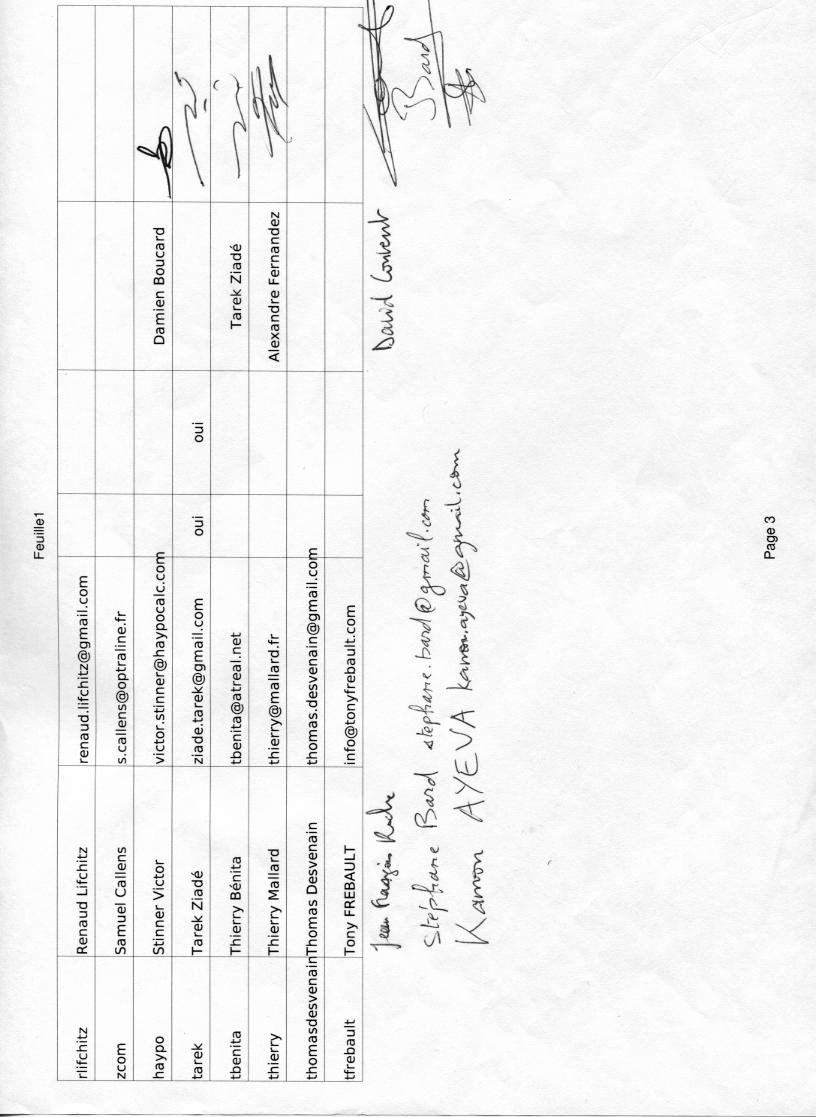 Feuille1
rlifchitz Renaud Lifchitz renaud.lifchitz@gmail.com
zcom Samuel Callens s.callens@optraline.fr
haypo Stinner Victor victor.stinner@haypocalc.com Damien Boucard
tarek Tarek Ziadé ziade.tarek@gmail.com oui oui
tbenita Thierry Bénita tbenita@atreal.net Tarek Ziadé
thierry Thierry Mallard thierry@mallard.fr Alexandre Fernandez
thomasdesvenain Thomas Desvenain thomas.desvenain@gmail.com
tfrebault Tony FREBAULT info@tonyfrebault.com
Jean François David
Stéphane Bard stephane.bard@gmail.com Bard
Kamon AYEVA kamon.ayeva@gmail.com
Page 3